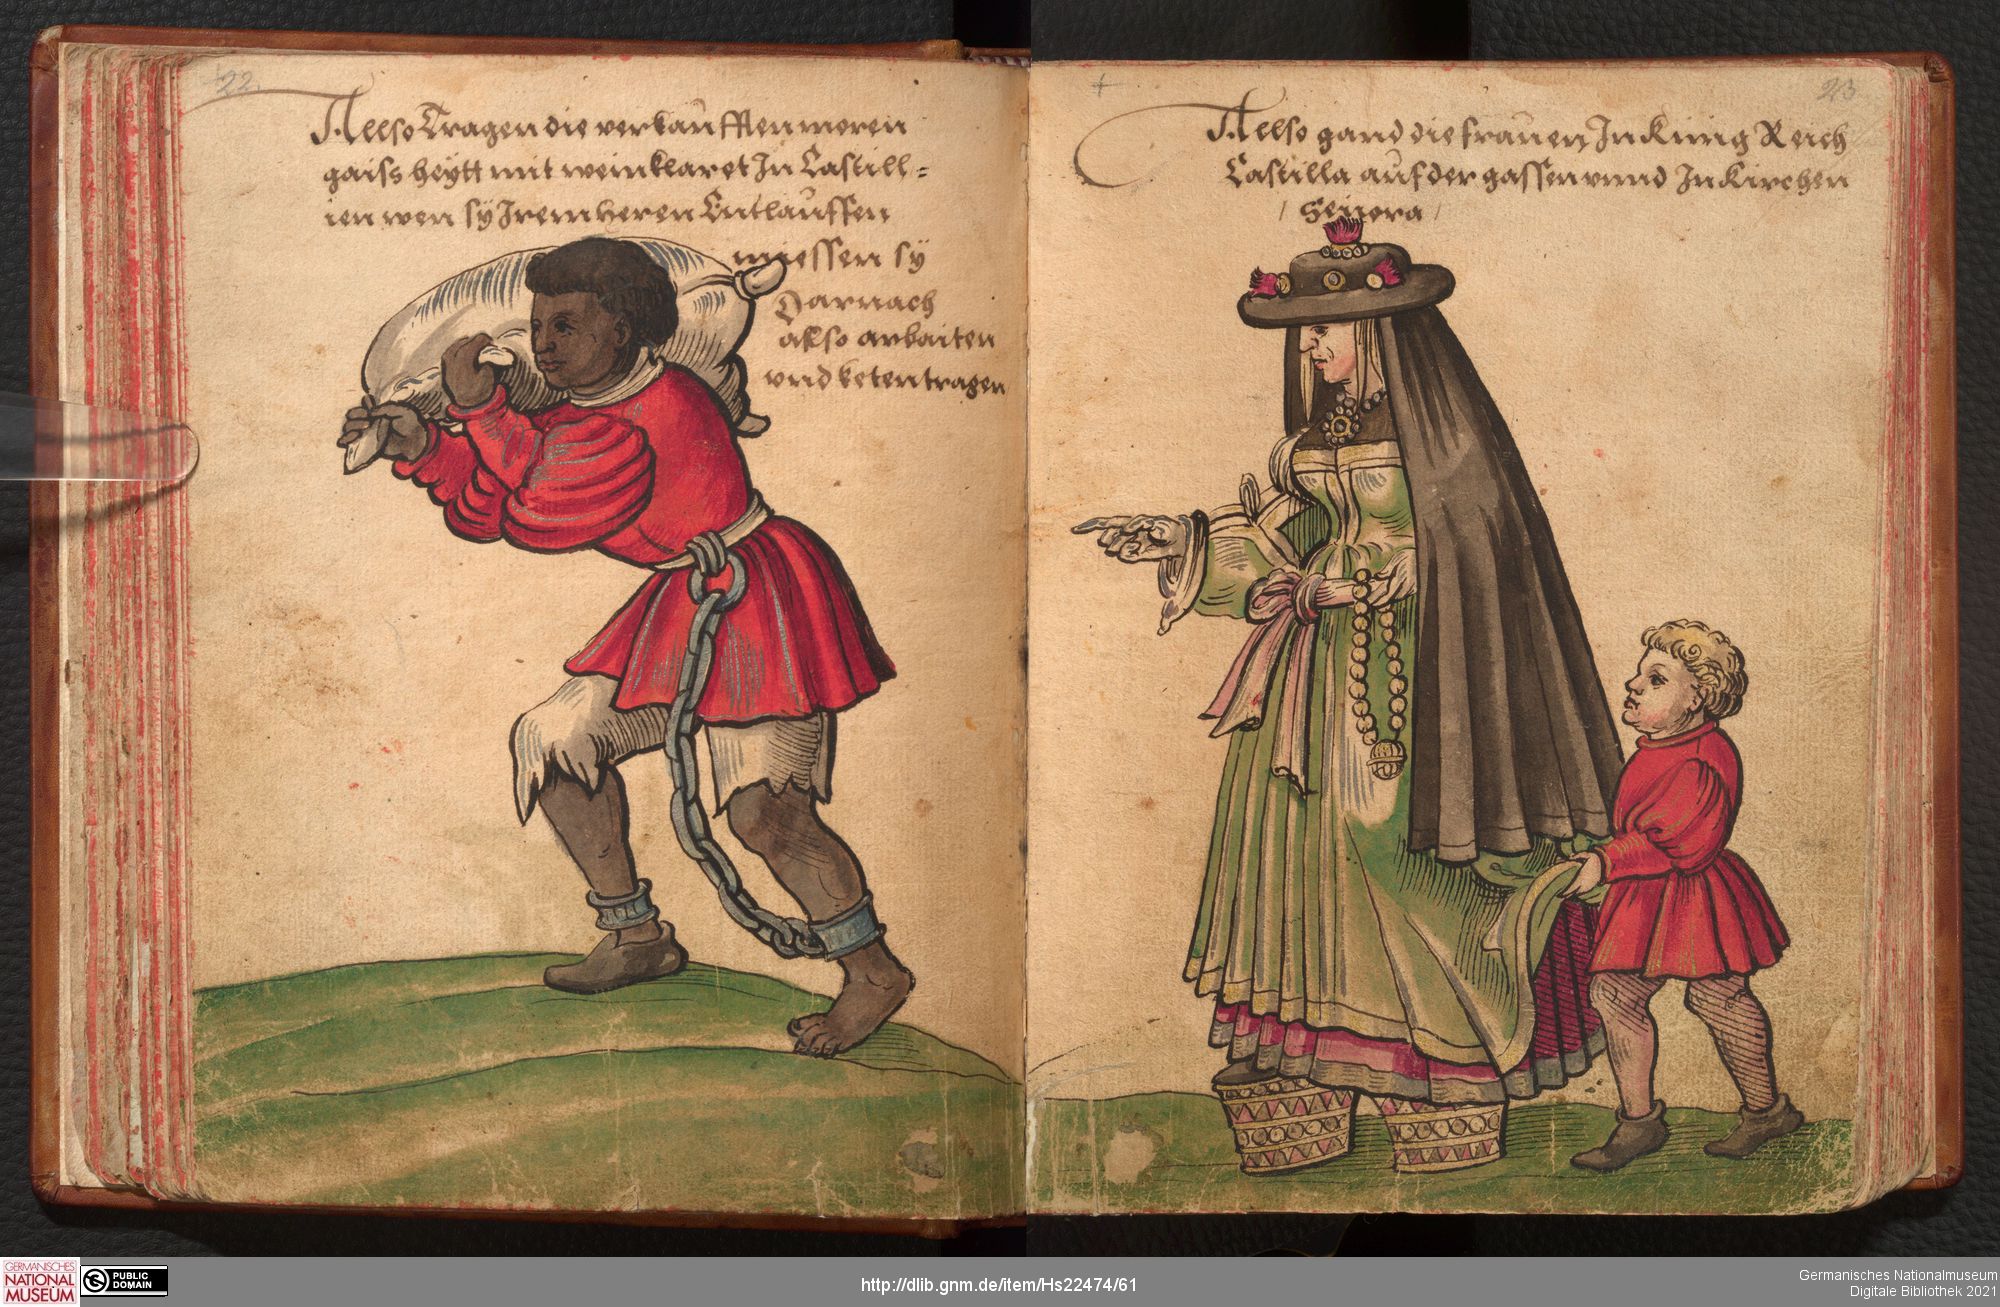 22.
Allso Tragen die verkaufften moren
gaiss heytt mit wein klaret In Castill=
ien wen sÿ Irem heren Entlauffen
miessen sÿ
Darnach
also arbaiten
vnd keten tragen
23
Allso gand die frauen In Künig Reich
Castilla auf der gassen vnnd In Kirchen
/ Seniora /
GERMANISCHES
NATIONAL
MUSEUM
PUBLIC
DOMAIN
http://dlib.gnm.de/item/Hs22474/61
Germanisches Nationalmuseum
Digitale Bibliothek 2021